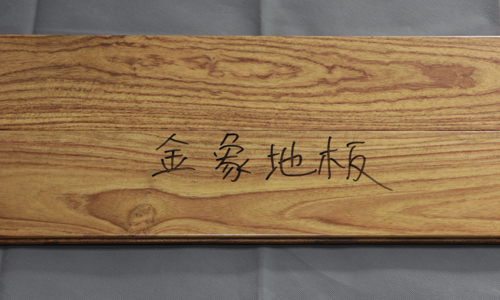 金象地板